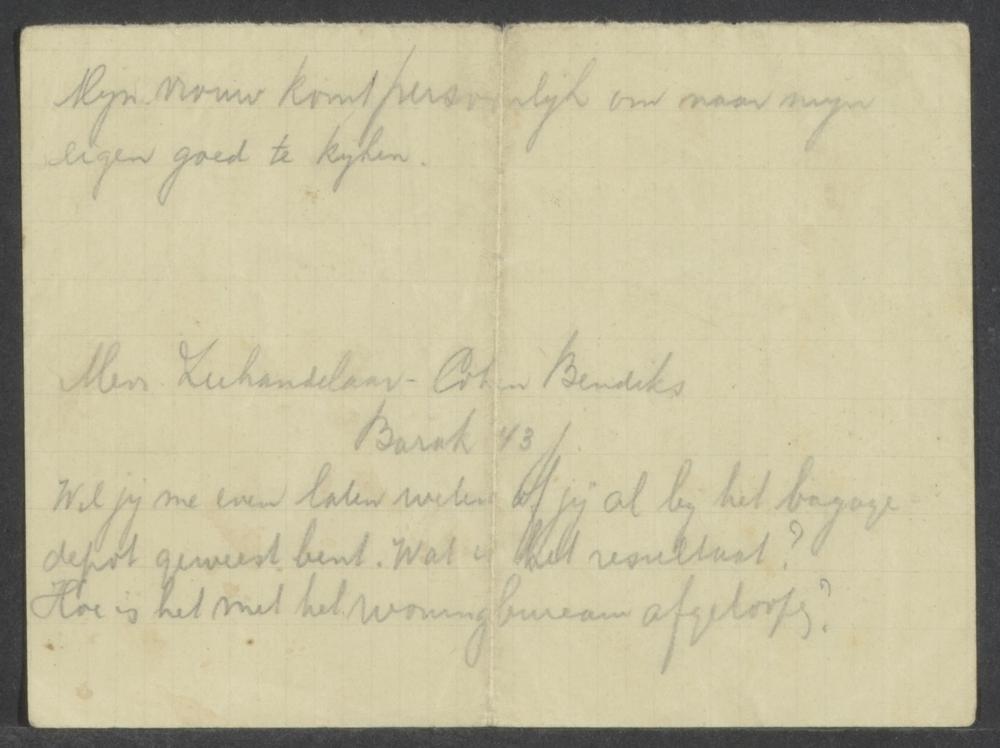 Mijn vrouw komt persoonlijk om naar mijn
eigen goed te kijken.
Mevr. Leehandelaar - Cohen Bendiks
Barak 43
Wil jij me even laten weten of jij al bij het bagage
depot geweest bent. Wat is het resultaat?
Hoe is het met het woningbureau afgeloopen?